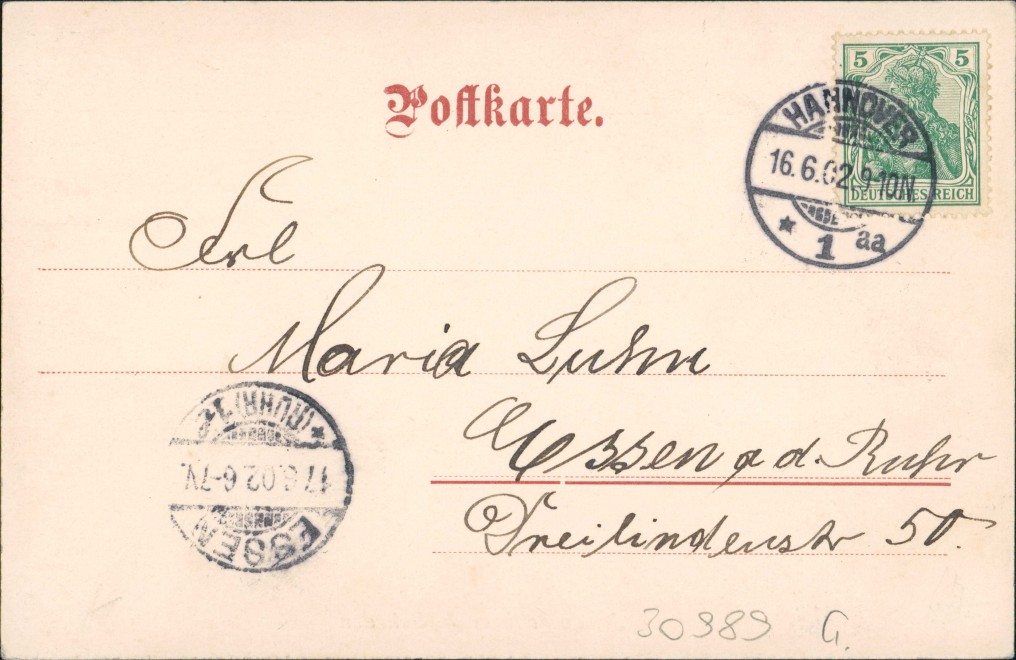 Postkarte.
5 5
DEUTSCHES REICH
HANNOVER
16.6.02. 9-10N.
* 1 aa
Frl
Maria Luhn
Essen a d. Ruhr
Dreilindenstr 50.
ESSEN
17.6.02. 6-7V.
* (RUHR) 1
30989 G.